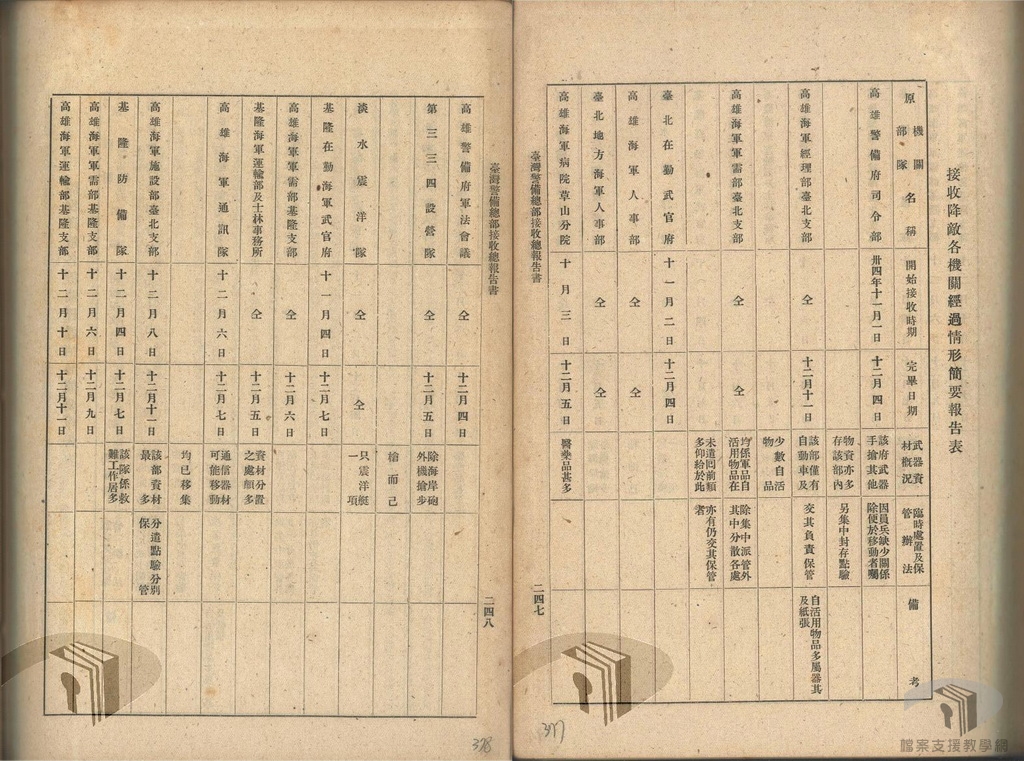 接收降敵各機關經過情形簡要報告表
原機關部隊名稱
開始接收時期
完畢日期
武器資材概況
臨時處置及保管辦法
備考
高雄警備府司令部
卅四年十一月一日
十二月四日
該府武器手搶其他物資亦多存該部內
因員兵缺少關係除便於移動者囑另集中封存點驗
高雄海軍經理部臺北支部
仝
十二月十一日
該部僅有自動車及少數自活物品
交其負責保管
自活用物品多屬器其及紙張
高雄海軍軍需部臺北支部
仝
仝
均係軍品自活用物品在未遣囘前類多仰給於此
除集中派管外其中分散各處亦有仍交其保管者
臺北在勤武官府
十一月二日
十二月四日
高雄海軍人事部
仝
仝
臺北地方海軍人事部
仝
仝
高雄海軍病院草山分院
十月三日
十二月五日
醫藥品甚多
臺灣警備總部接收總報告書
二四七
377
臺灣警備總部接收總報告書
二四八
高雄警備府軍法會議
仝
十二月四日
第三三四設營隊
仝
十二月五日
除海岸砲外機搶步槍而已
淡水震洋隊
仝
仝
只震洋艇一項
基隆在勤海軍武官府
十一月四日
十二月七日
高雄海軍軍需部基隆支部
仝
十二月六日
基隆海軍運輸部及士林事務所
仝
十二月五日
資材分置之處頗多
高雄海軍通訊隊
十二月六日
十二月七日
通信器材可能移動均已移集
高雄海軍施設部臺北支部
十二月八日
十二月十一日
該部資材最多
分遣點驗分別保管
基隆防備隊
十二月四日
十二月七日
該隊係救難工作居多
高雄海軍軍需部基隆支部
十二月六日
十二月九日
高雄海軍運輸部基隆支部
十二月十日
十二月十一日
378
檔案支援教學網